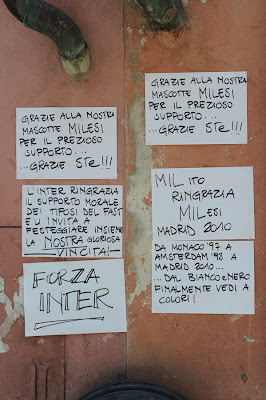 GRAZIE ALLA NOSTRA
MASCOTTE MILESI
PER IL PREZIOSO
SUPPORTO...
...GRAZIE STE!!!
L'INTER RINGRAZIA
IL SUPPORTO MORALE
DEI TIFOSI DEL FAST
E VI INVITA A
FESTEGGIARE INSIEME
LA NOSTRA GLORIOSA
VINCITA!
FORZA
INTER
GRAZIE ALLA NOSTRA
MASCOTTE MILESI
PER IL PREZIOSO
SUPPORTO...
...GRAZIE STE!!!
MILITO
RINGRAZIA
MILESI
MADRID 2010
DA MONACO '97 A
AMSTERDAM '98 A
MADRID 2010...
...DAL BIANCO E NERO
FINALMENTE VEDI A
COLORI!